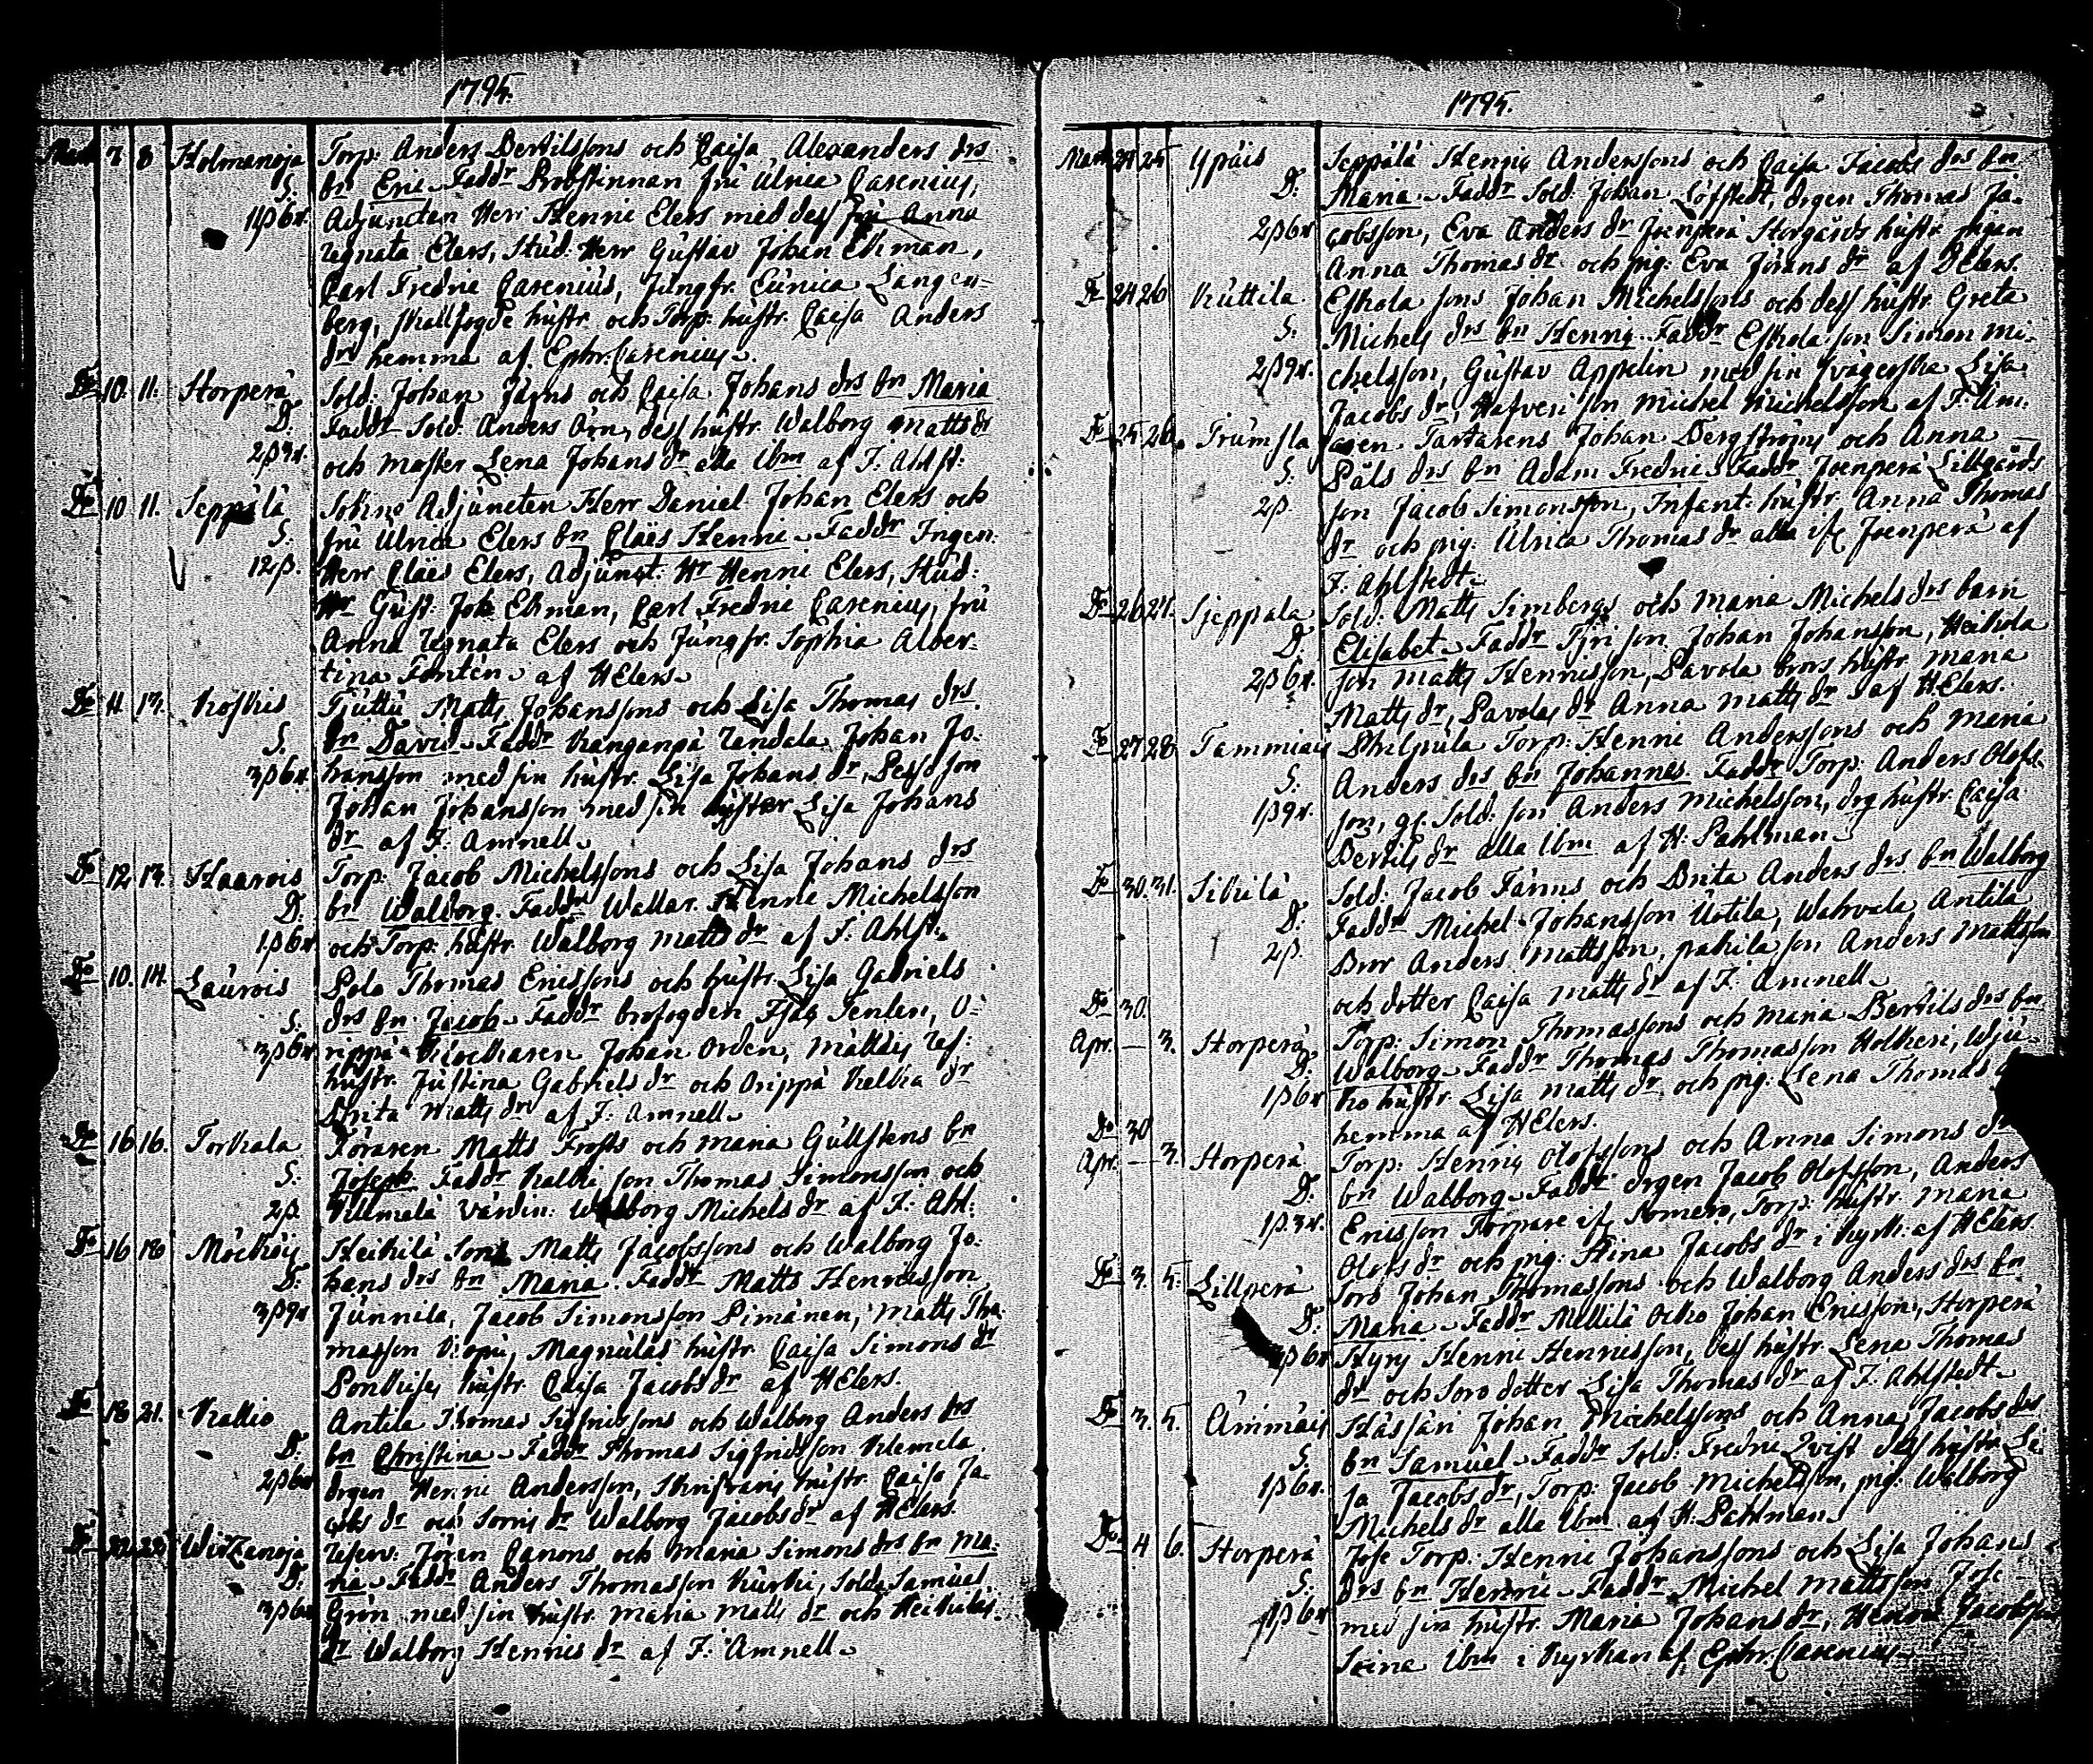 1795.
Mart 7 8 Holmanoja Torp: Anders Bertilssons och Caisa Alexanders drs
S. bn Eric. Faddr Probstinnan fru Ulrica Carenius,
Adjuncten Herr Henric Elers med dess fru Anna
Regnata Elers, Stud: Herr Gustav Johan Ekman,
Carl Fredric Carenius, Jungfr. Eunica Langen-
berg, hustr. och Torp: hustr. Caisa Anders
dr hemma af Ephr: Carenius.
Do 10. 11. Storperä Sold: Johan och Caisa Johans drs bn Maria
D. Faddr Sold: Anders Örn, dess hustr. Walborg Matts dr
och Moster Lena Johans dr alla ibm af F: Ahlst:
Do 10 11. Seppälä Sokne Adjuncten Herr Daniel Johan Elers och
S. fru Ulrica Elers bn Claës Henric. Faddr Ingen:
12β. Herr Claës Elers, Adjunct: Hr Henric Elers, Stud:
Hr Gust: Joh: Ekman, Carl Fredric Carenius, fru
Anna Regnata Elers och Jungfr. Sophia Alber-
tina Fontén af H Elers.
Do 11. 13. Koskis Tjuttu Matts Johanssons och Lisa Thomas drs
S. bn David. Faddr Kanganpä Johan Jo-
3β6r. hansson med sin hustr. Lisa Johans dr, son
Johan Johansson med sin hustr. Lisa Johans
dr af F: Amnell.
Do 12 13. Haarois Torp: Jacob Michelssons och Lisa Johans drs
D. bn Walborg. Faddr Henric Michelsson
1β6r. och Torp: hustr. Walborg Matts dr af F: Ahlst:
Do 10. 14. Laurois Polo Thomas Ericssons och hustr. Lisa Gabriels
S. drs bn Jacob. Faddr brofogden Isac Tenlen, O-
3β6r rippä Johan Orden,
hustr. Justina Gabriels dr och Orippä dr
Brita Matts dr af F: Amnell.
Do 16 16. Torkala Matts Frosts och Maria Gullstens bn
S. Joseph. Faddr son Thomas Simonsson och
2β. Walborg Michels dr af F: Ahl:
Do 16 18 Möcköis Heikilä Sons Matts Jacobssons och Walborg Jo-
D. hans drs bn Maria. Faddr Matts Henricsson
3β9r Junnila, Jacob Simonsson Pimänen, Matts Tho-
masson, hustr. Caisa Simons dr
hustr. Caisa Jacobs dr af H Elers.
Do 18 21. Kallio Antila Thomas Sigfridssons och Walborg Anders drs
D. bn Christina. Faddr Thomas Sigfridsson Klemela,
2β6r drgen Henric Andersson, hustr. Caisa Ja-
cobs dr och dr Walborg Jacobs dr af H Elers.
Do 22. Wirzanoja Reserv: Jöran Canons och Maria Simons drs bn Ma-
D. ria. Faddr Anders Thomasson Kurki, Sold: Samuel
3β6r Grön med sin hustr. Maria Matts dr och Heikiläs
dr Walborg Henrics dr af F: Amnell.
1795.
Mart 24 25 Ypäis Seppälä Henrics Anderssons och Caisa Jacobs drs bn
D. Maria. Faddr Sold: Johan Löfstedt, drgen Thomas Ja-
2β6r cobsson, Eva Anders dr Storgårds hustr. pigan
Anna Thomas dr och pig: Eva Jörans dr af D Elers.
Do 24 26 Kuttila Eskola sons Johan Michelssons och dess hustr. Greta
S. Michels drs bn Henric. Faddr Eskola son Simon Mi-
2β9r. chelsson, Gustav Appelin med sin svägerska Lisa
Jacobs dr, son Michel Michelsson af F: Am:
Do 25 26. Trumsla Johan Bergströms och Anna
S. Påls drs bn Adam Fredric. Faddr Joenperä Lillgårds
2β. son Jacob Simonsson, Infant: hustr. Anna Thomas
dr och pig: Ulrica Thomas dr alla ifr Joenperä af
F: Ahlstedt.
Do 26 27. Sjeppala Sold: Matts Simbergs och Maria Michels drs barn
D. Elisabet. Faddr son Johan Johansson, Heikola
2β6r. son Matts Henricsson, Pavola brors hustr. Maria
Matts dr, Pavolas dr Anna Matts dr af H Elers.
Do 27 28 Tammiais Torp: Henric Anderssons och Maria
S. Anders drs bn Johannes. Faddr Torp: Anders Olofs-
1β9r. son, gl: Sold: son Anders Michelsson, drg hustr. Caisa
Bertils dr alla ibm af H: Pahlman.
Do 30. 31. Sikilä Sold: Jacob och Brita Anders drs bn Walborg
D. Faddr Michel Johansson Uotila, Antila
2β. Bror Anders Mattsson, son Anders Mattsson
och dotter Caisa Matts dr af F: Amnell.
Do 30.
Apr. — 3. Storperä Torp: Simon Thomassons och Maria Bertils drs bn
D. Walborg. Faddr Thomas Thomasson Holkeri,
1β6r hustr. Lisa Matts dr och pig: Lena Thomas
hemma af H Elers.
Do 30
Apr. — 3. Storperä Torp: Henrics Olofssons och Anna Simons
D. bn Walborg. Faddr drgen Jacob Olofsson, Anders
1β3r. Ericsson Torpare ifr Somero, Torp: hustr. Maria
Olofs dr och pig: Stina Jacobs dr i Kyrk: af H Elers.
Do 3. 5. Lillperä Johan Thomassons och Walborg Anders drs bn
D. Maria. Faddr Mellilä Johan Ericsson, Storperä
Henric Henricsson, dess hustr. Lena Thomas
dr och dotter Lisa Thomas dr af F: Ahlstedt.
Do 3. 5. Ämmäis Johan Michelssons och Anna Jacobs drs
S. bn Samuel. Faddr Sold: Fredric Qvist dess hustr. Li-
1β6r. sa Jacobs dr, Torp: Jacob Michelsson, pig: Walborg
Michels dr alla ibm af H: Pahlman.
Do 4 6. Storperä Jose Torp: Henric Johanssons och Lisa Johans
S. drs bn Henric. Faddr Michel Mattsson Jose
med sin hustr. Maria Johans dr, Henric Jacobsson
ibm i Kyrkan af Ephr: Carenius.